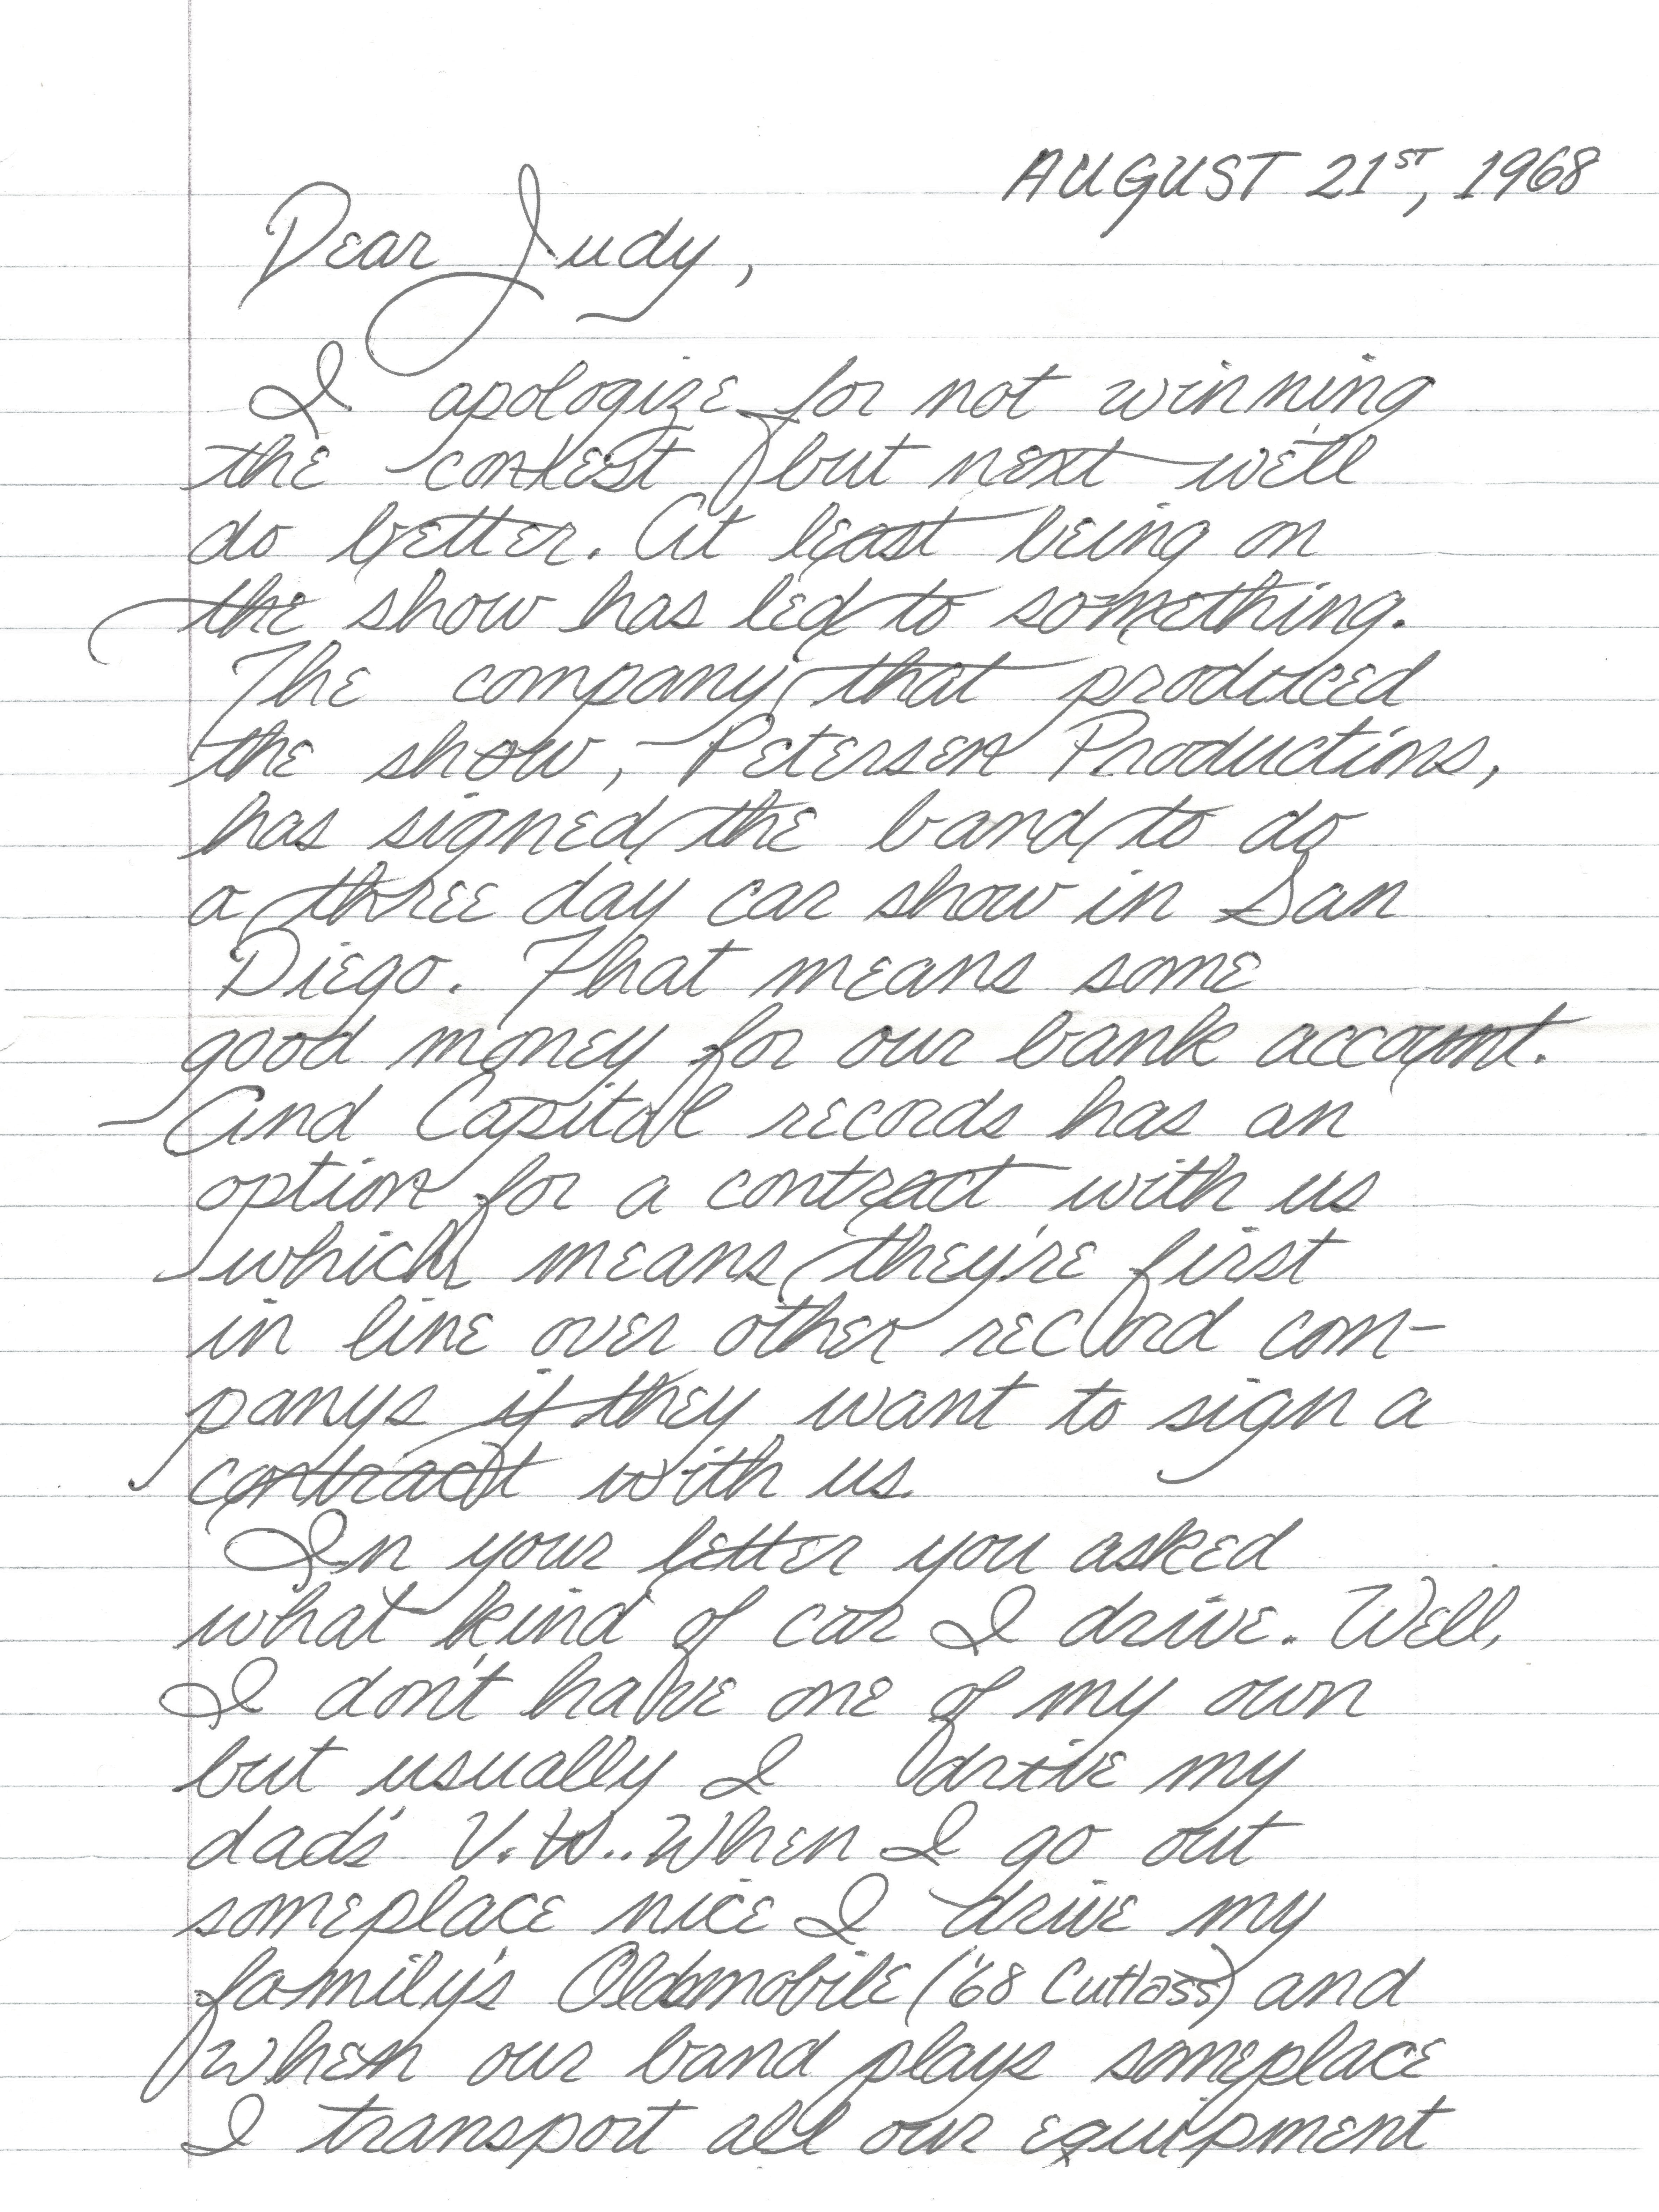 AUGUST 21ST, 1968
Dear Judy,
I apologize for not winning
the contest but next we'll
do better. At least being on
the show has led to something.
The company that produced
the show, Petersen Productions,
has signed the band to do
a three day car show in San
Diego. That means some
good money for our bank account.
And Capital records has an
option for a contract with us
which means they're first
in line over other record com-
panys if they want to sign a
contract with us.
In your letter you asked
what kind of car I drive. Well,
I don't have one of my own
but usually I drive my
dad's V.W.. When I go out
someplace nice I drive my
family's Oldsmobile ('68 Cutlass) and
when our band plays someplace
I transport all our equipment